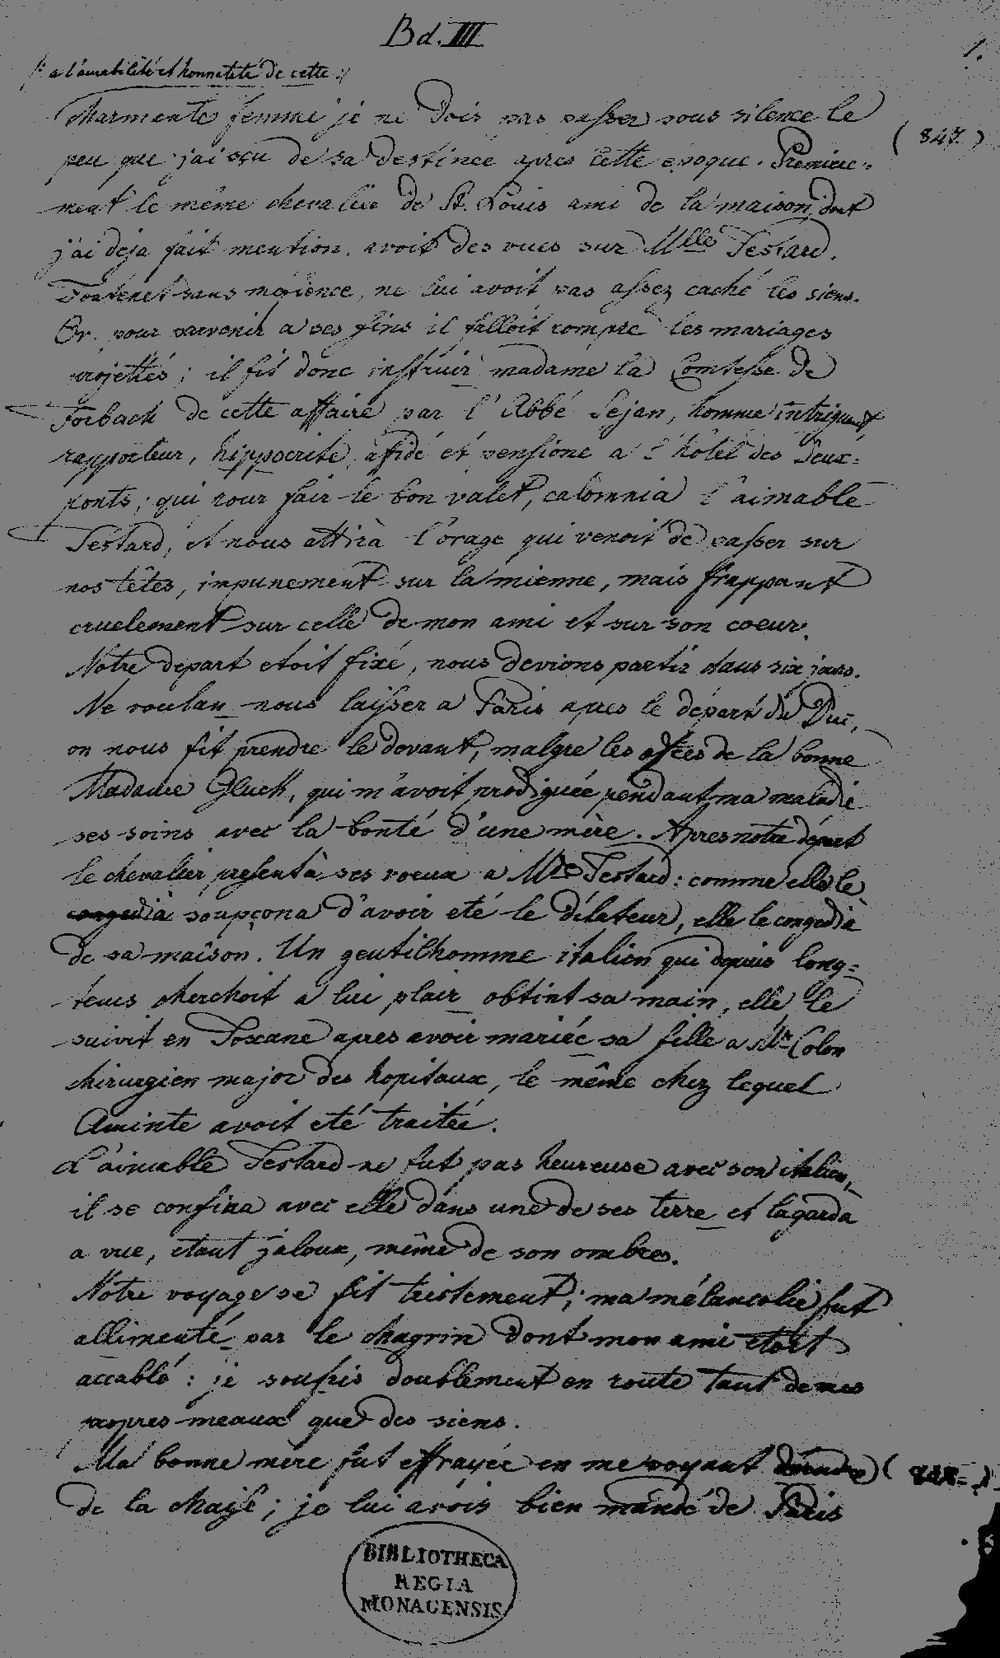 Bd. III
1.
/: a l'amabilité et honnetêté de cette :/
Charmante femme je ne dois pas passer sous silence le
(847)
peu que j'ai sçu de sa destinée apres cette epoque. Premiere=
ment le même chevalier de St. Louis ami de la maison dont
j'ai deja fait mention, avoit des vues sur Mlle Testard.
Fontenet sans mefience, ne lui avoit pas assez caché les siens.
Or, pour parvenir a ses fins il falloit rompre les mariages
projettés; il fit donc instruir madame la Comtesse de
Forbach de cette affaire par l'Abbé Sejan, homme intriguant,
rapporteur, hippocrite, afidé et pensioné a l'hôtel des Deux=
ponts; qui pour fair le bon valet, calomnia l'aimable
Testard, et nous attirà l'orage qui venoit de passer sur
nos têtes, impunement sur la mienne, mais frappant
cruelement sur celle de mon ami et sur son coeur.
Notre depart etoit fixé, nous devions partir dans six jours.
Ne voulan nous laisser a Paris apres le départ du Duc,
on nous fit prendre le devant, malgre les offres de la bonne
Madame Gluck, qui m'avoit prodiguée pendant ma maladie
ses soins avec la bonté d'une mère. Apres notre départ
le chevalier presentà ses voeux a Mlle Testard: comme elle le
congedià soupçona d'avoir eté le délateur, elle le congedia
de sa maison. Un gentilhomme italien qui depuis long=
tems cherchoit a lui plair obtint sa main, elle le
suivit en Toscane apres avoir mariée sa fille a Mr. Colon
chirurgien major des hopitaux, le même chez lequel
Aminte avoit eté traitée.
L'aimable Testard ne fut pas heureuse avec son italien,
il se confina avec elle dans une de ses terre et la garda
a vue, etant jaloux, même de son ombres.
Notre voyage se fit tristement; ma mélancolie fut
allimenté par le chagrin dont mon ami etoit
accablé: je soufris doublement en route tant de mes
propres meaux que des siens.
Ma bonne mere fut effrayée en me voyant
(848)
de la chaise; je lui avois bien mandé de Paris
BIBLIOTHECA
REGIA
MONACENSIS